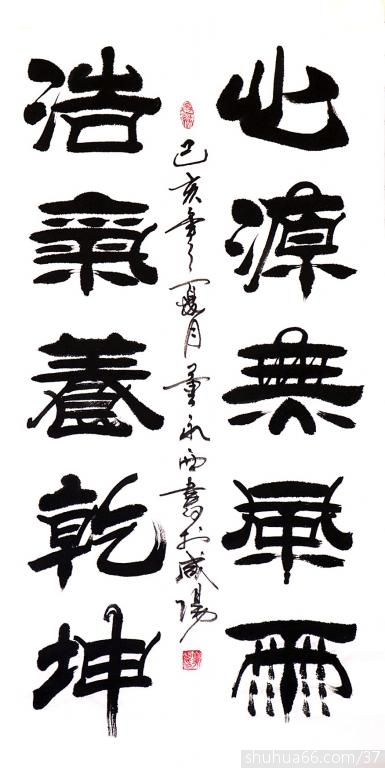 心源無風雨
浩氣養乾坤
己亥年之夏月董永西書於咸陽
shuhua66.com/37